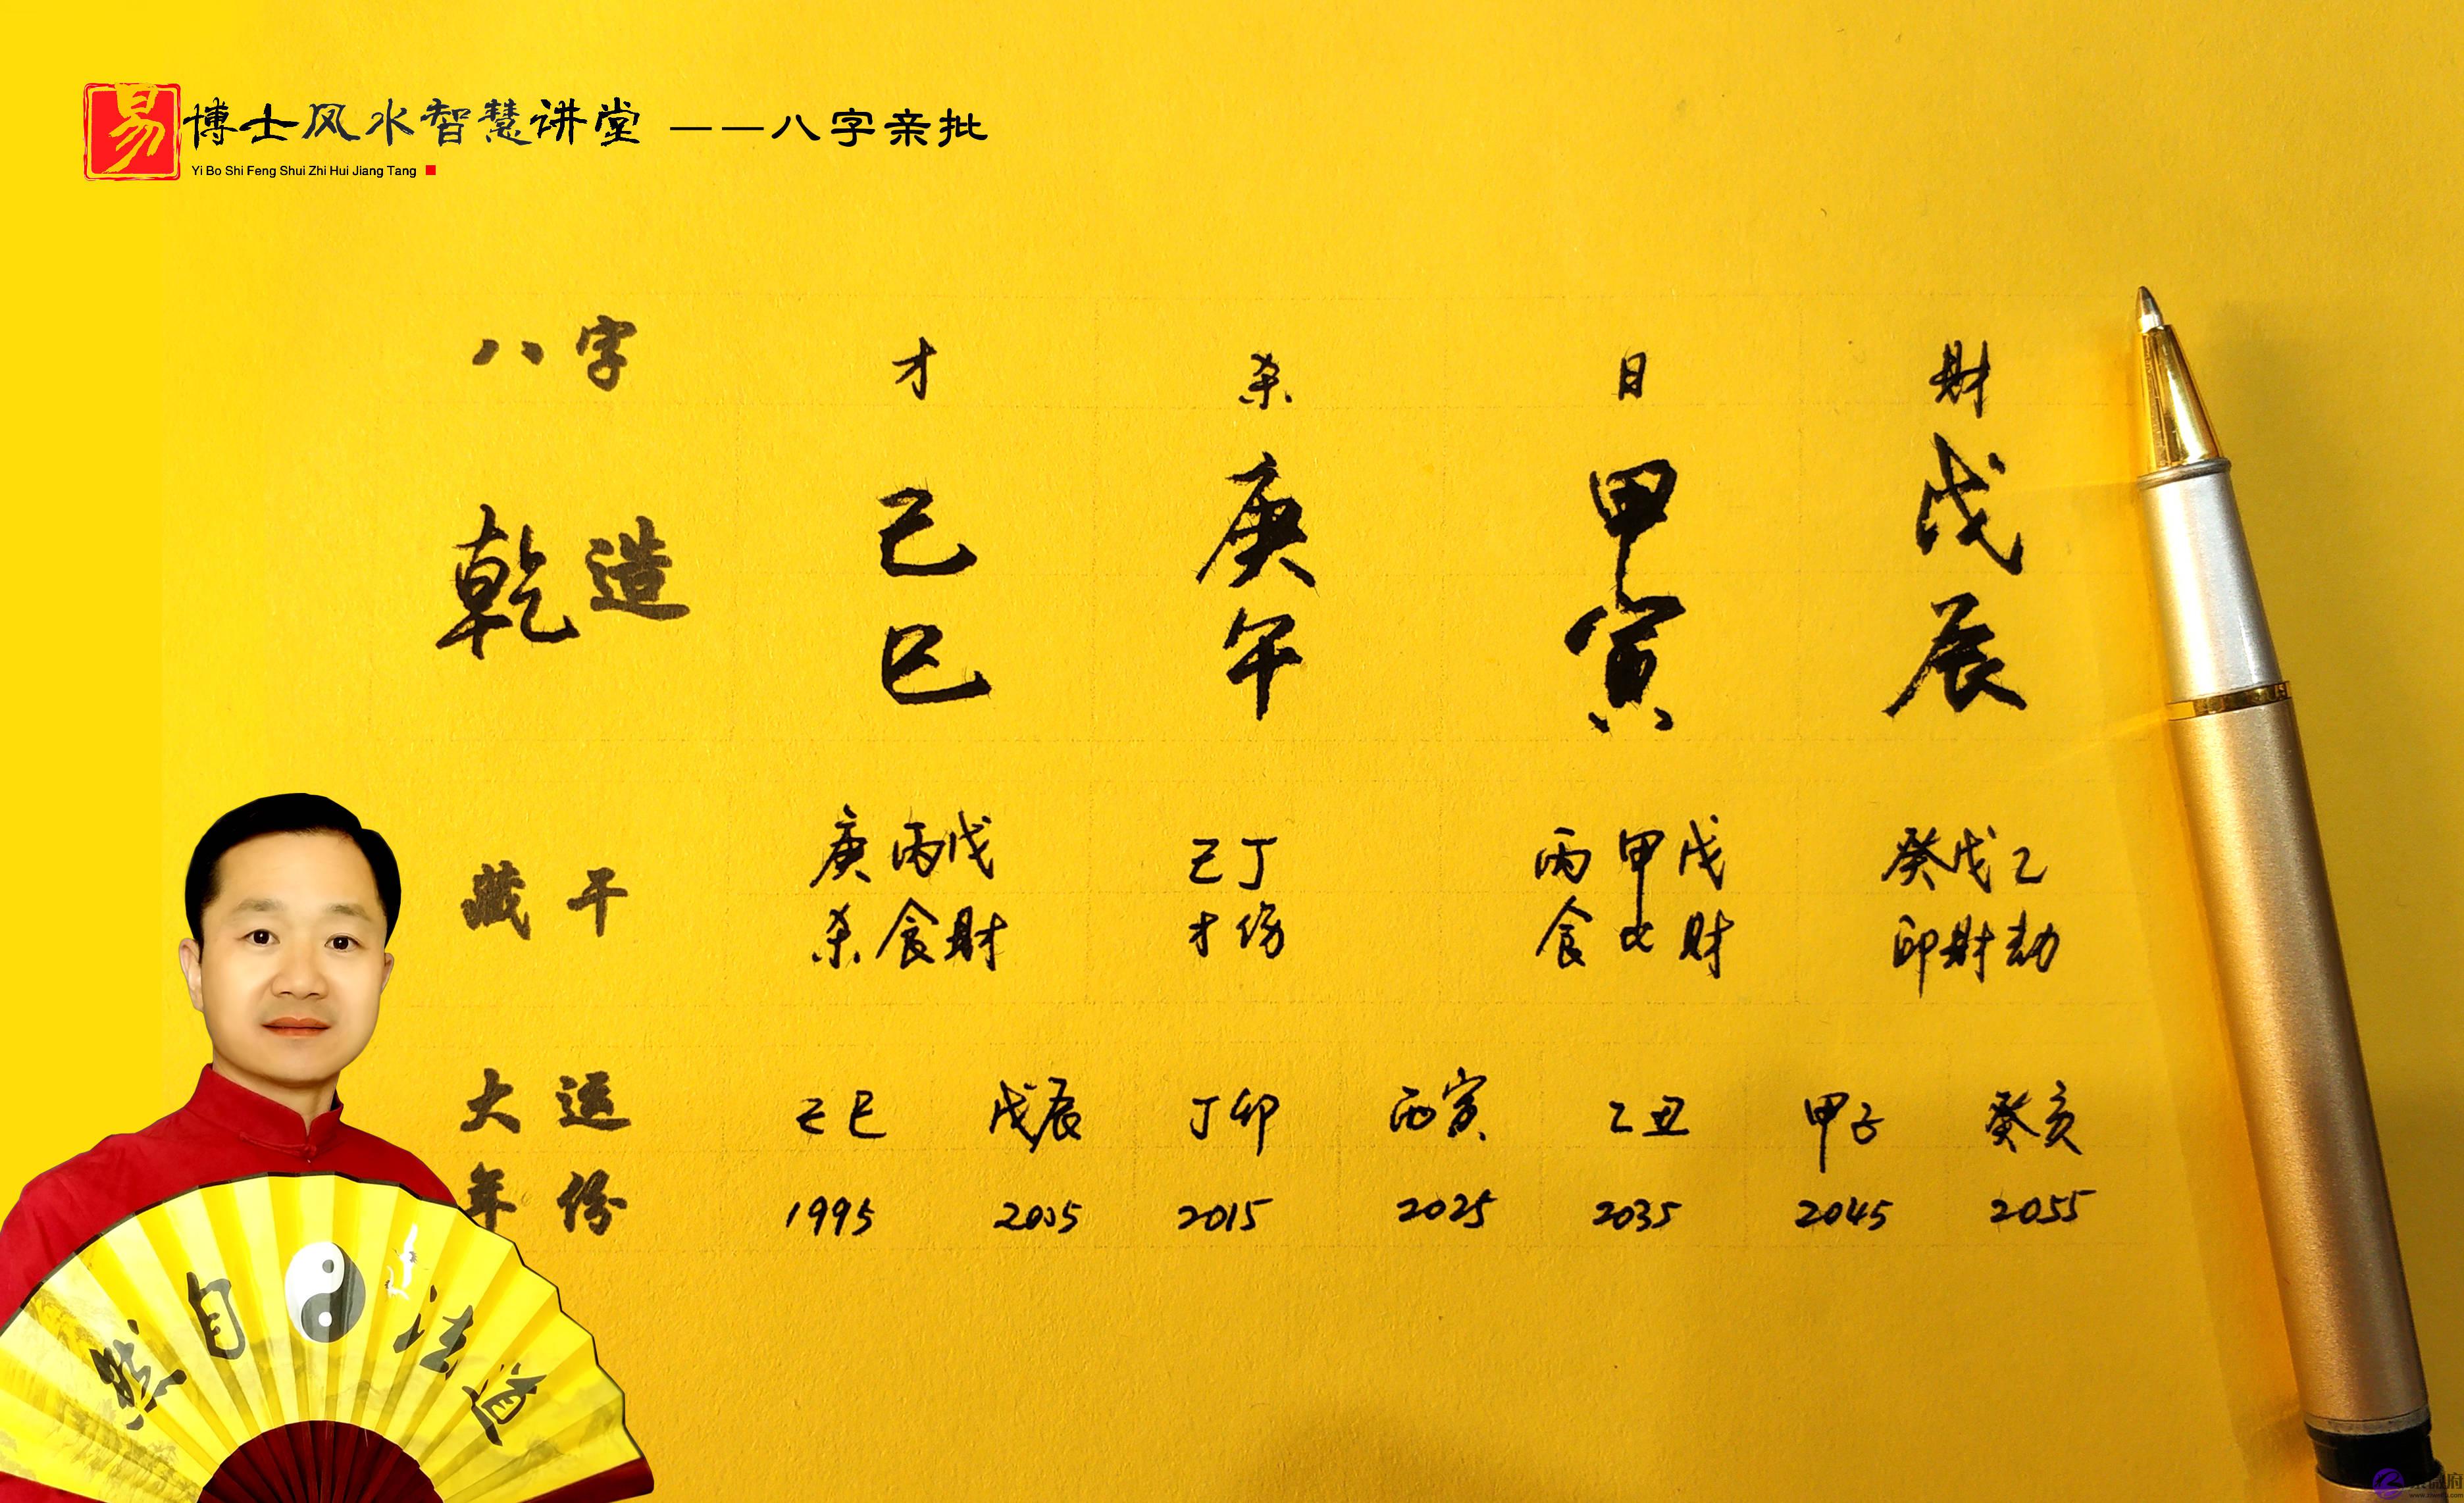 易博士风水智慧讲堂 ——八字亲批
Yi Bo Shi Feng Shui Zhi Hui Jiang Tang
八字 才 杀 日 财
乾造 己 庚 甲 戊
巳 午 寅 辰
藏干 庚丙戊 己丁 丙甲戊 癸戊乙
杀食财 才伤 食比财 印财劫
大运 己巳 戊辰 丁卯 丙寅 乙丑 甲子 癸亥
年份 1995 2005 2015 2025 2035 2045 2055
然自法道